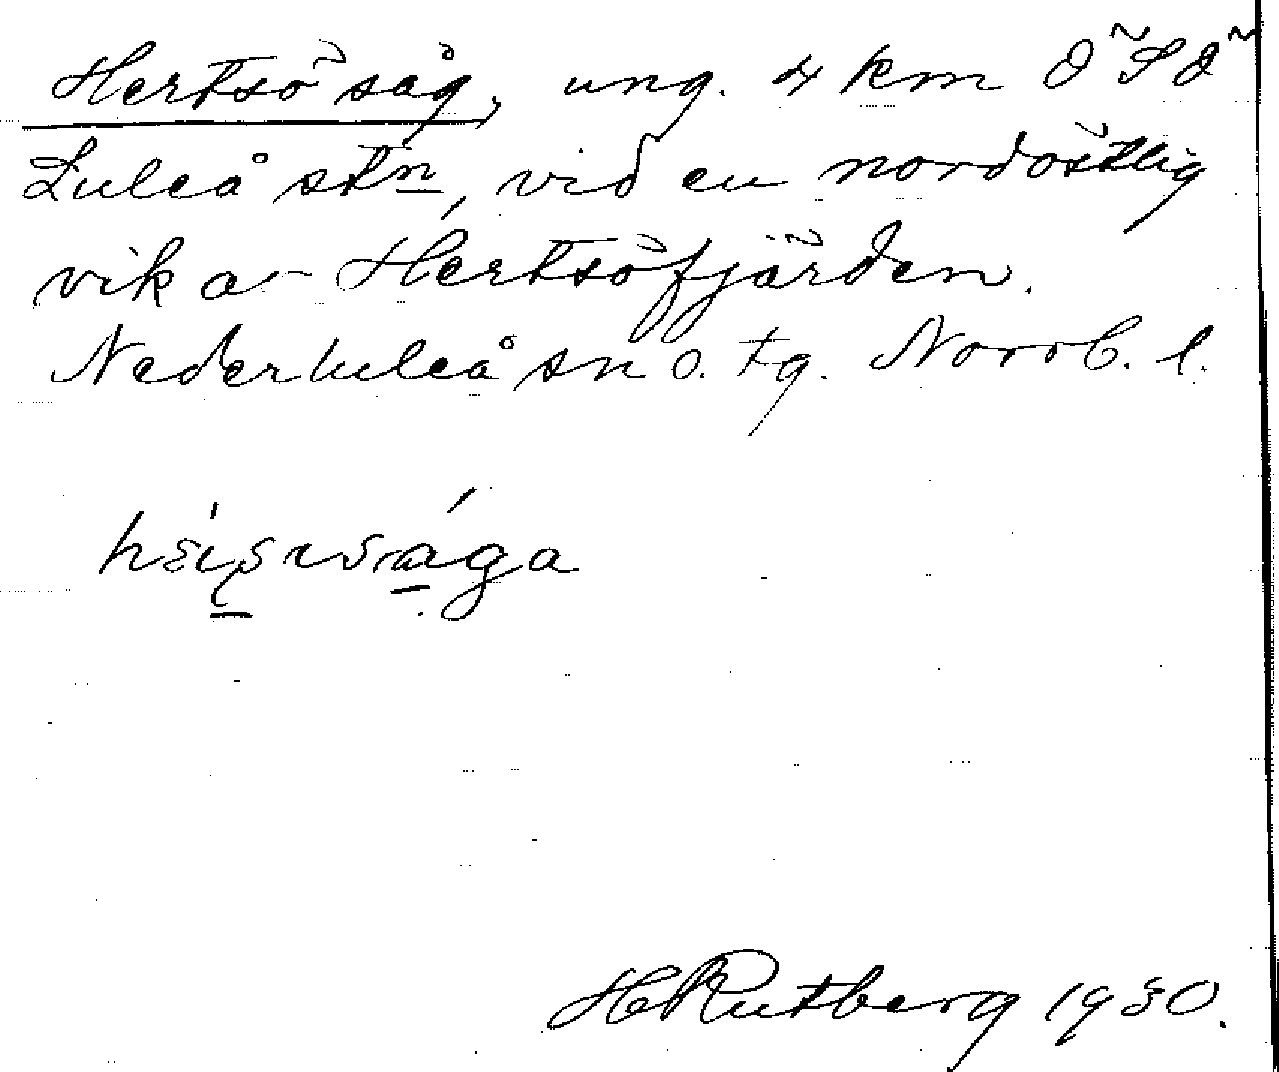 Hertsö såg, ung. 4 km ÖSÖ
Luleå stn, vid en nordöstlig
vik av Hertsöfjärden.
Nederluleå sn o. tg. Norrb. l.
H Rutberg 1930.